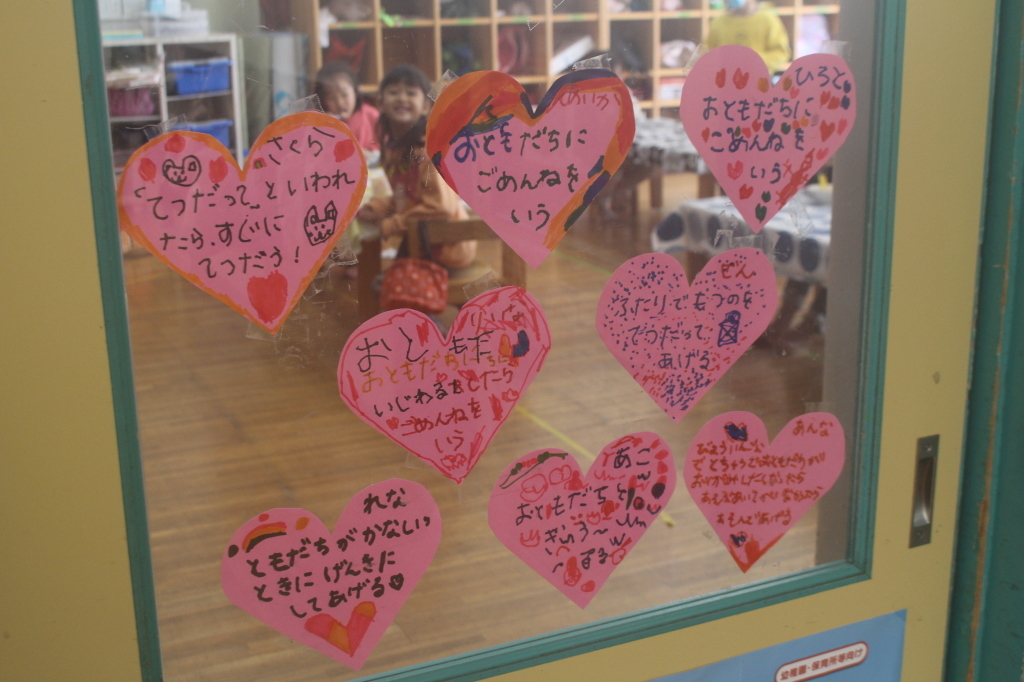 さくら
「てつだって」といわれ
たら、すぐに
てつだう!
めいか
おともだちに
ごめんねを
いう
ひろと
おともだちに
ごめんねを
いう
おともだ
おともだちに
いじわるをしたら
ごめんねを
いう
ぜん
ふたりでもつのを
てつだって
あげる
れな
ともだちがかなしい
ときにげんきに
してあげる
あこ
おともだちと
ぎゅう〜
する
あんな
あそんであげる
幼稚園・保育所等向け